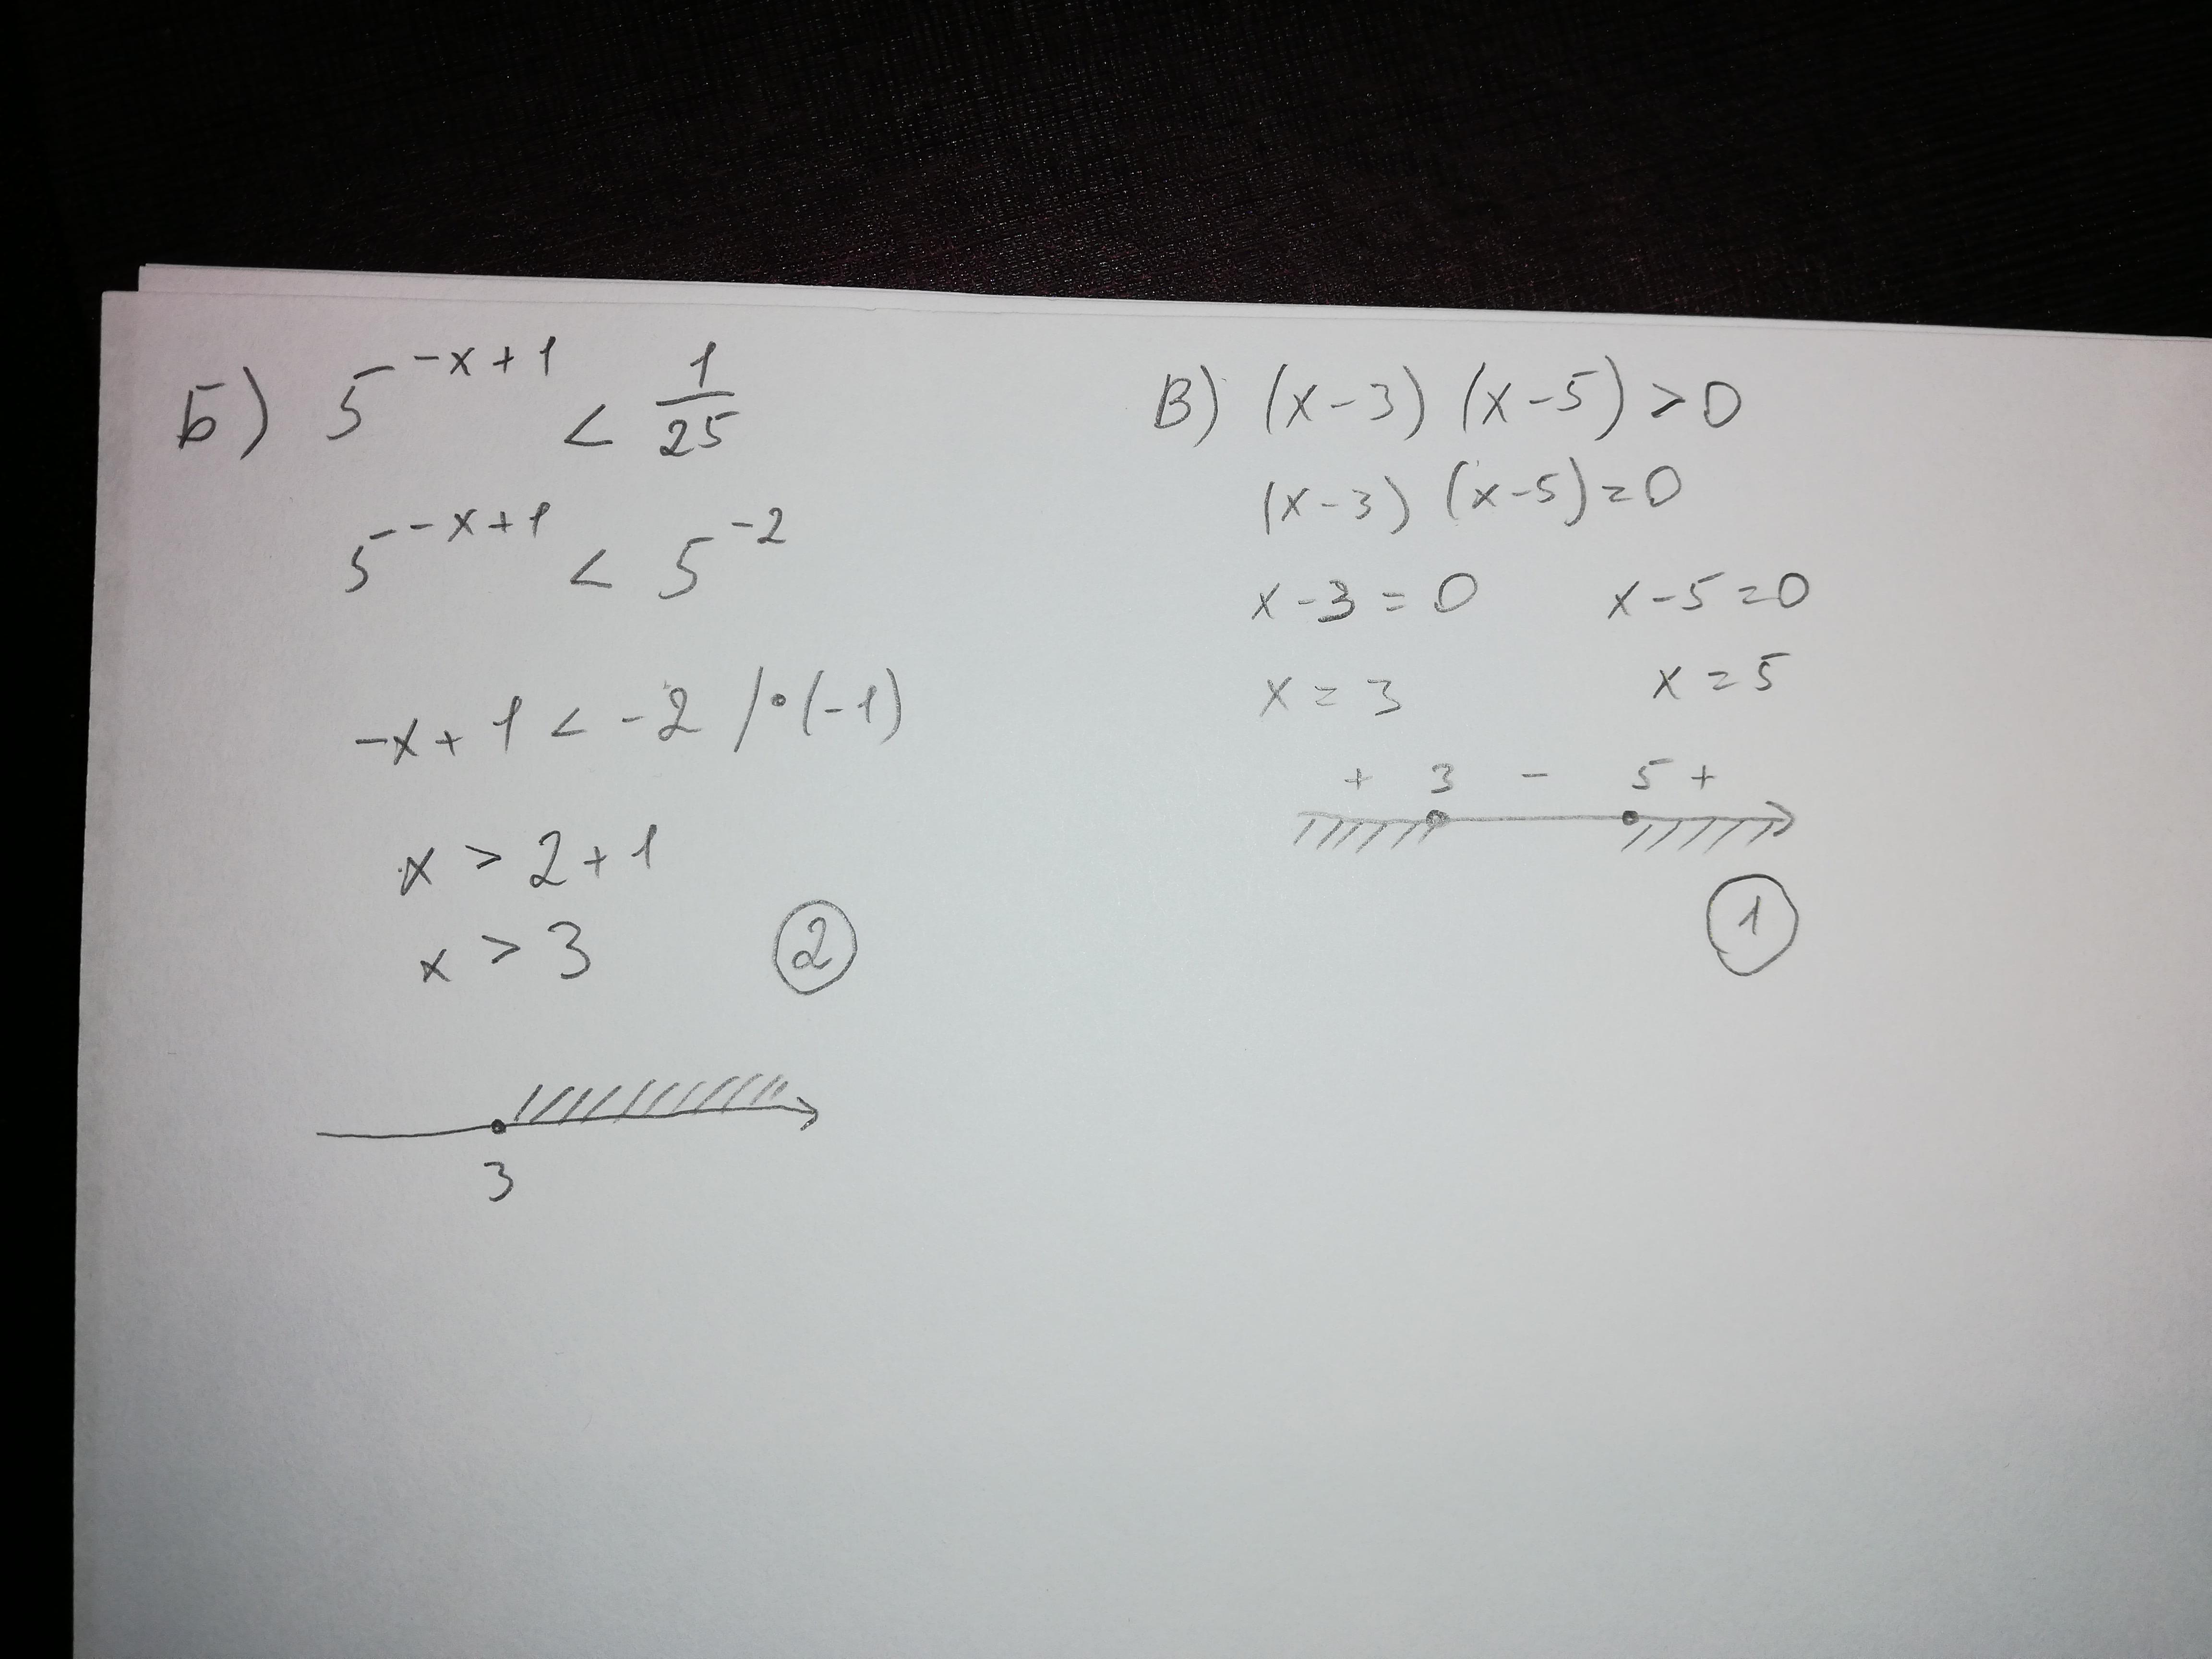 Б) 5^{-x+1} < 1/25
5^{-x+1} < 5^{-2}
-x+1 < -2 /•(-1)
x > 2+1
x > 3
②
3
В) (x-3) (x-5) > 0
(x-3) (x-5) = 0
x-3 = 0 x-5 = 0
x = 3 x = 5
+ 3 - 5 +
①